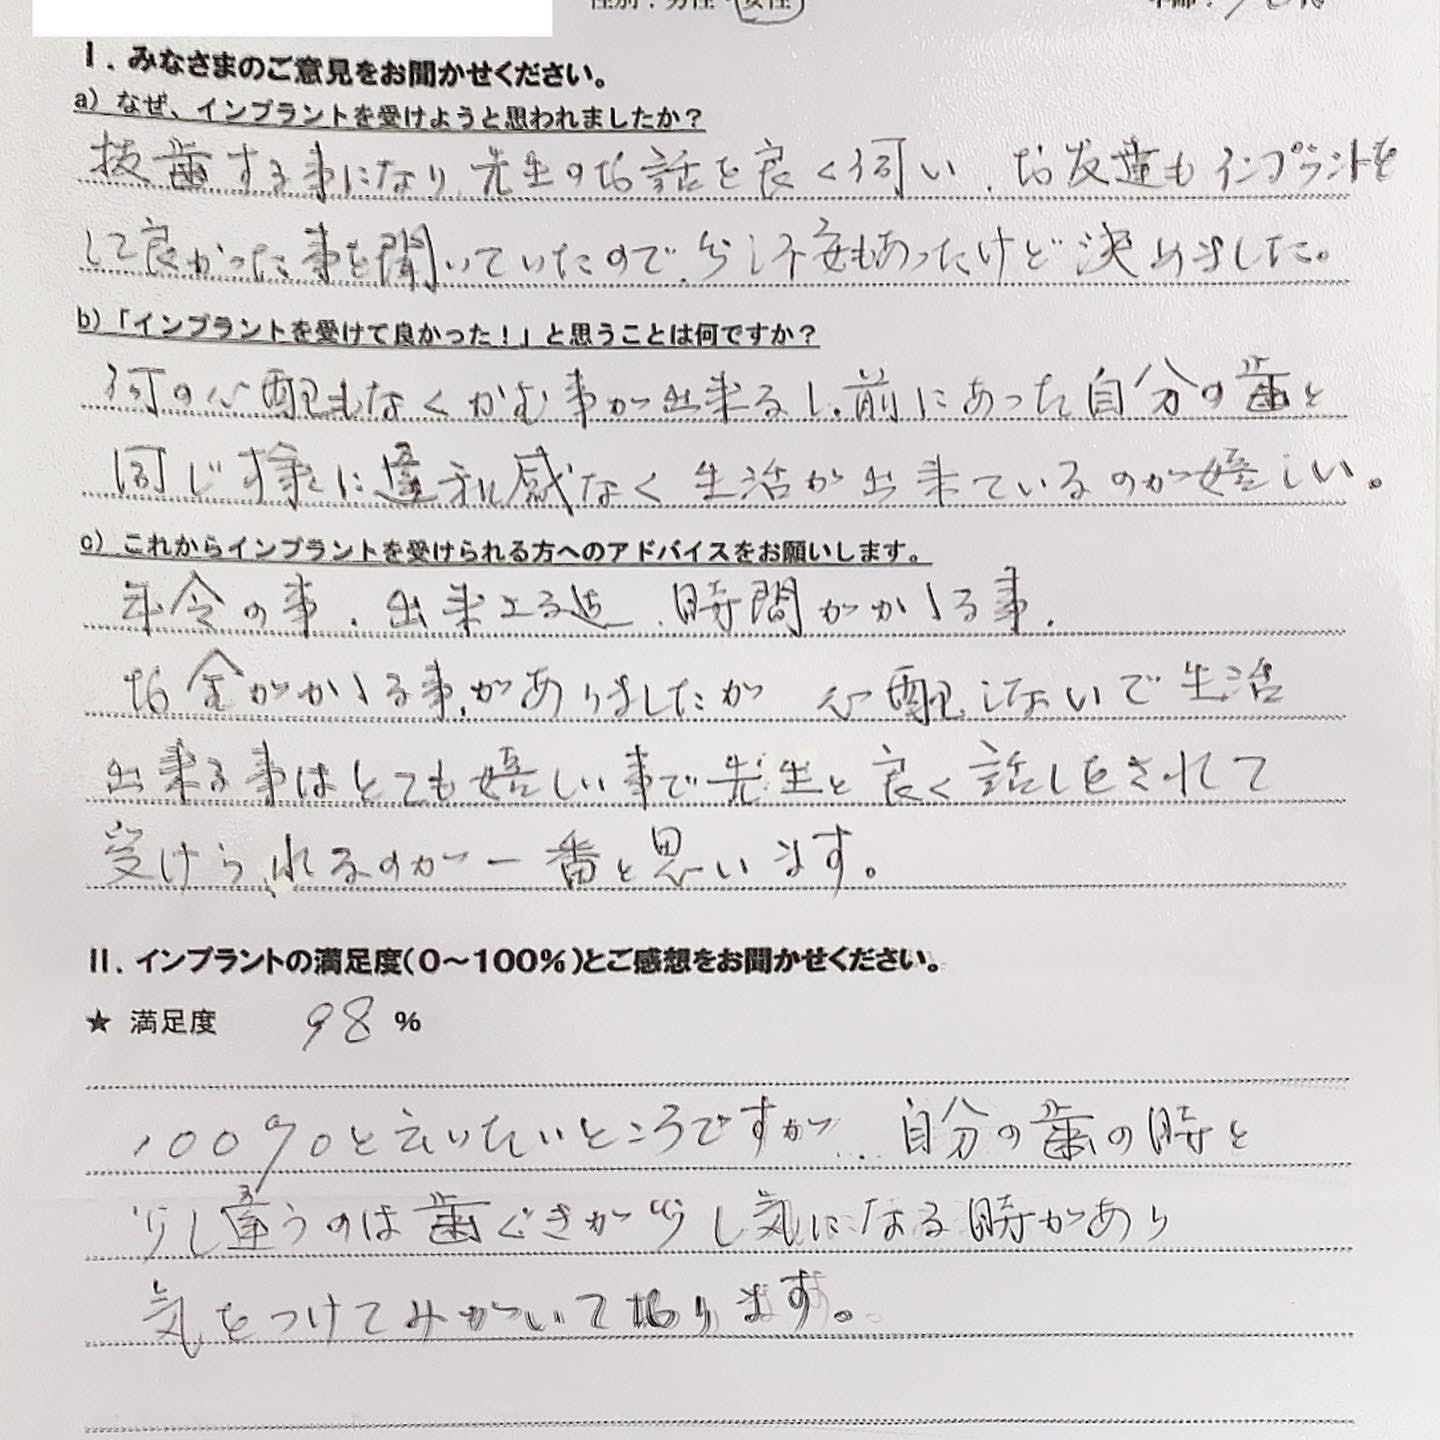 性別：男性・女性
Ⅰ．みなさまのご意見をお聞かせください。
a）なぜ、インプラントを受けようと思われましたか？
抜歯する事になり、先生のお話を良く伺い、お友達もインプラントを
して良かった事を聞いていたので、少し不安もあったけど決めました。
b）「インプラントを受けて良かった！」と思うことは何ですか？
何の心配もなくかむ事が出来るし、前にあった自分の歯と
同じ様に違和感なく生活が出来ているのが嬉しい。
c）これからインプラントを受けられる方へのアドバイスをお願いします。
年令の事、出来上る迄、時間がかかる事、
お金がかかる事がありましたが 心配しないで生活
出来る事はとても嬉しい事で先生と良く話しをされて
受けられるのが一番と思います。
Ⅱ．インプラントの満足度（0～100％）とご感想をお聞かせください。
★ 満足度 98 ％
100％と云いたいところですが… 自分の歯の時と
少し違うのは歯ぐきが少し気になる時があり
気をつけてみがいております。